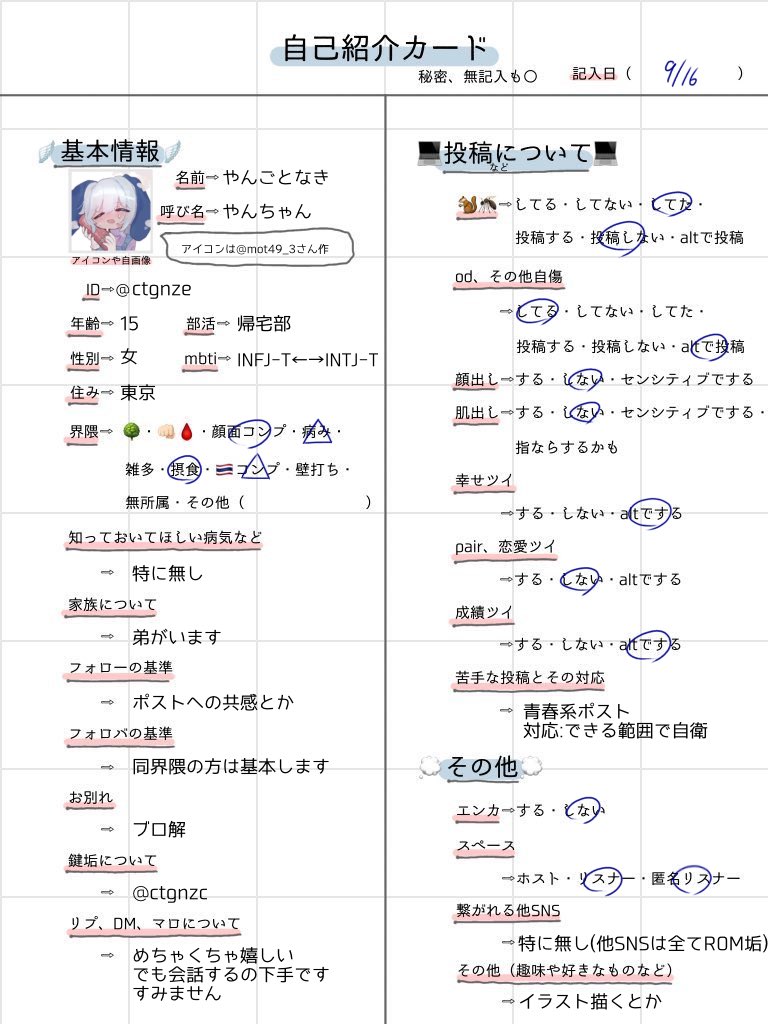 自己紹介カード
秘密、無記入も〇
記入日（ 9/16 ）
基本情報
名前⇨やんごとなき
呼び名⇨やんちゃん
アイコンは@mot49_3さん作
アイコンや自画像
ID⇨@ctgnze
年齢⇨ 15 部活⇨ 帰宅部
性別⇨ 女 mbti⇨ INFJ-T←→INTJ-T
住み⇨ 東京
界隈⇨ 🌳・👊🏻🩸・顔面コンプ・病み・
雑多・摂食・🇹🇭コンプ・壁打ち・
無所属・その他（ ）
知っておいてほしい病気など
⇨ 特に無し
家族について
⇨ 弟がいます
フォローの基準
⇨ ポストへの共感とか
フォロバの基準
⇨ 同界隈の方は基本します
お別れ
⇨ ブロ解
鍵垢について
⇨ @ctgnzc
リプ、DM、マロについて
⇨ めちゃくちゃ嬉しい
でも会話するの下手です
すみません
投稿について
など
🐿️🦟⇨してる・してない・してた・
投稿する・投稿しない・altで投稿
od、その他自傷
⇨してる・してない・してた・
投稿する・投稿しない・altで投稿
顔出し⇨する・しない・センシティブでする
肌出し⇨する・しない・センシティブでする・
指ならするかも
幸せツイ
⇨する・しない・altでする
pair、恋愛ツイ
⇨する・しない・altでする
成績ツイ
⇨する・しない・altでする
苦手な投稿とその対応
⇨ 青春系ポスト
対応:できる範囲で自衛
その他
エンカ⇨する・しない
スペース
⇨ホスト・リスナー・匿名リスナー
繋がれる他SNS
⇨特に無し(他SNSは全てROM垢)
その他（趣味や好きなものなど）
⇨イラスト描くとか